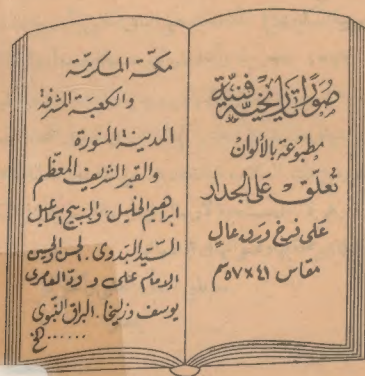 صور تاريخية فنية
مطبوعة بالألوان
تعلق على الجدار
على فرخ ورق عال
مقاس ٤١ × ٥٧ سم
مكة المكرمة
والكعبة المشرفة
المدينة المنورة
والقبر الشريف المعظم
ابراهيم الخليل والذبيح اسماعيل
السيد البدوى . الحسن والحسين
الإمام على و ودّ العامرى
يوسف وزليخا . البراق النبوى
...... الخ